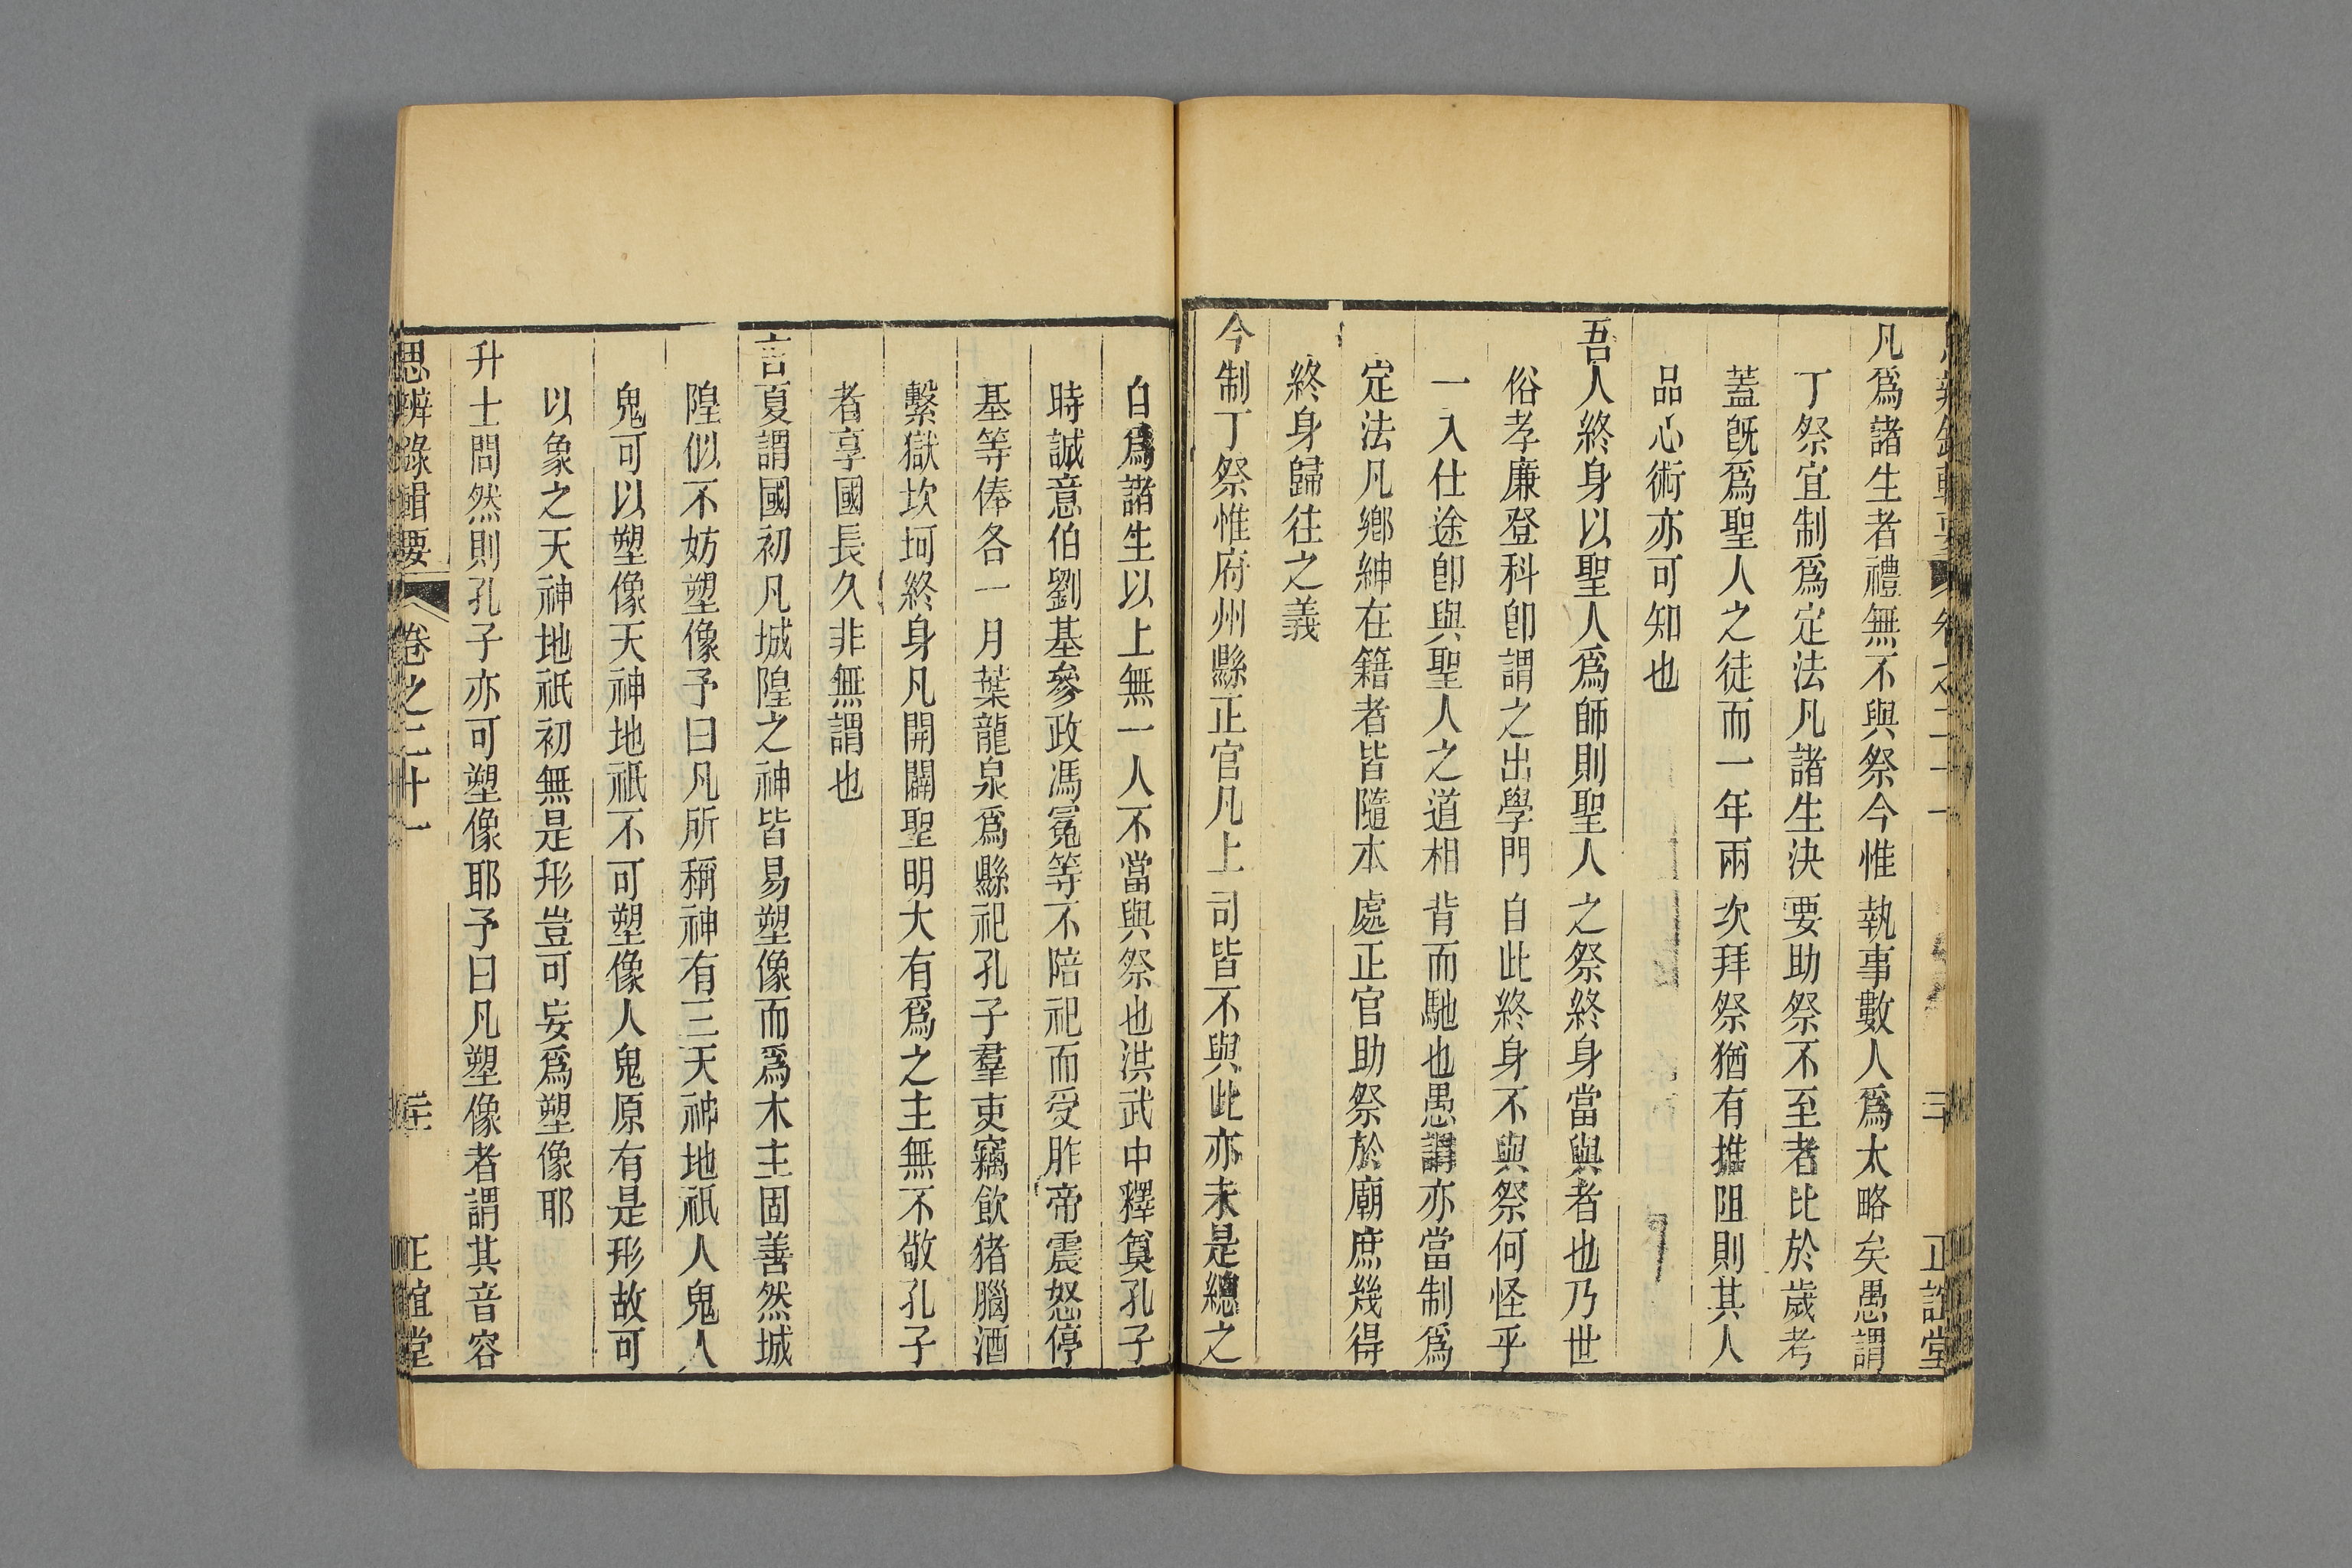 思辨錄輯要 卷之二十一 三十 正誼堂
凡爲諸生者禮無不與祭今惟執事數人爲太略矣愚謂
丁祭宜制爲定法凡諸生決要助祭不至者比於歲考
蓋旣爲聖人之徒而一年兩次拜祭猶有推阻則其人
品心術亦可知也
吾人終身以聖人爲師則聖人之祭終身當與者也乃世
俗孝廉登科卽謂之出學門自此終身不與祭何怪乎
一入仕途卽與聖人之道相背而馳也愚謂亦當制爲
定法凡鄕紳在籍者皆隨本處正官助祭於廟庶幾得
終身歸往之義
今制丁祭惟府州縣正官凡上司皆不與此亦未是總之
自爲諸生以上無一人不當與祭也洪武中釋奠孔子
時誠意伯劉基參政馮冕等不陪祀而受胙帝震怒停
基等俸各一月葉龍泉爲縣祀孔子羣吏竊飮猪腦酒
繫獄坎坷終身凡開闢聖明大有爲之主無不敬孔子
者享國長久非無謂也
言夏謂國初凡城隍之神皆易塑像而爲木主固善然城
隍似不妨塑像予曰凡所稱神有三天神地祇人鬼人
鬼可以塑像天神地祇不可塑像人鬼原有是形故可
以象之天神地祇初無是形豈可妄爲塑像耶
升士問然則孔子亦可塑像耶予曰凡塑像者謂其音容
思辨錄輯要 卷之二十一 正誼堂